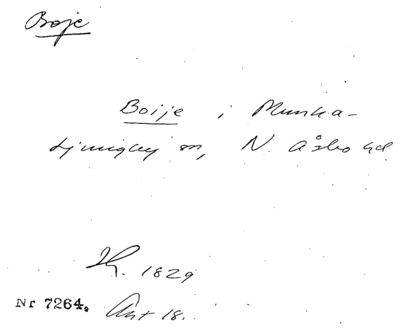 Boje
Boije i Munka-
Ljungby sn, N. Åsbo hd
Jh. 1829
Nr 7264. Ant 18.